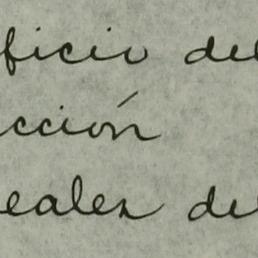 ficio del
cción
eales de